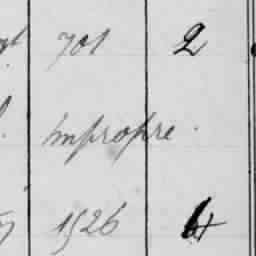 701 2
Impropre.
1526 4